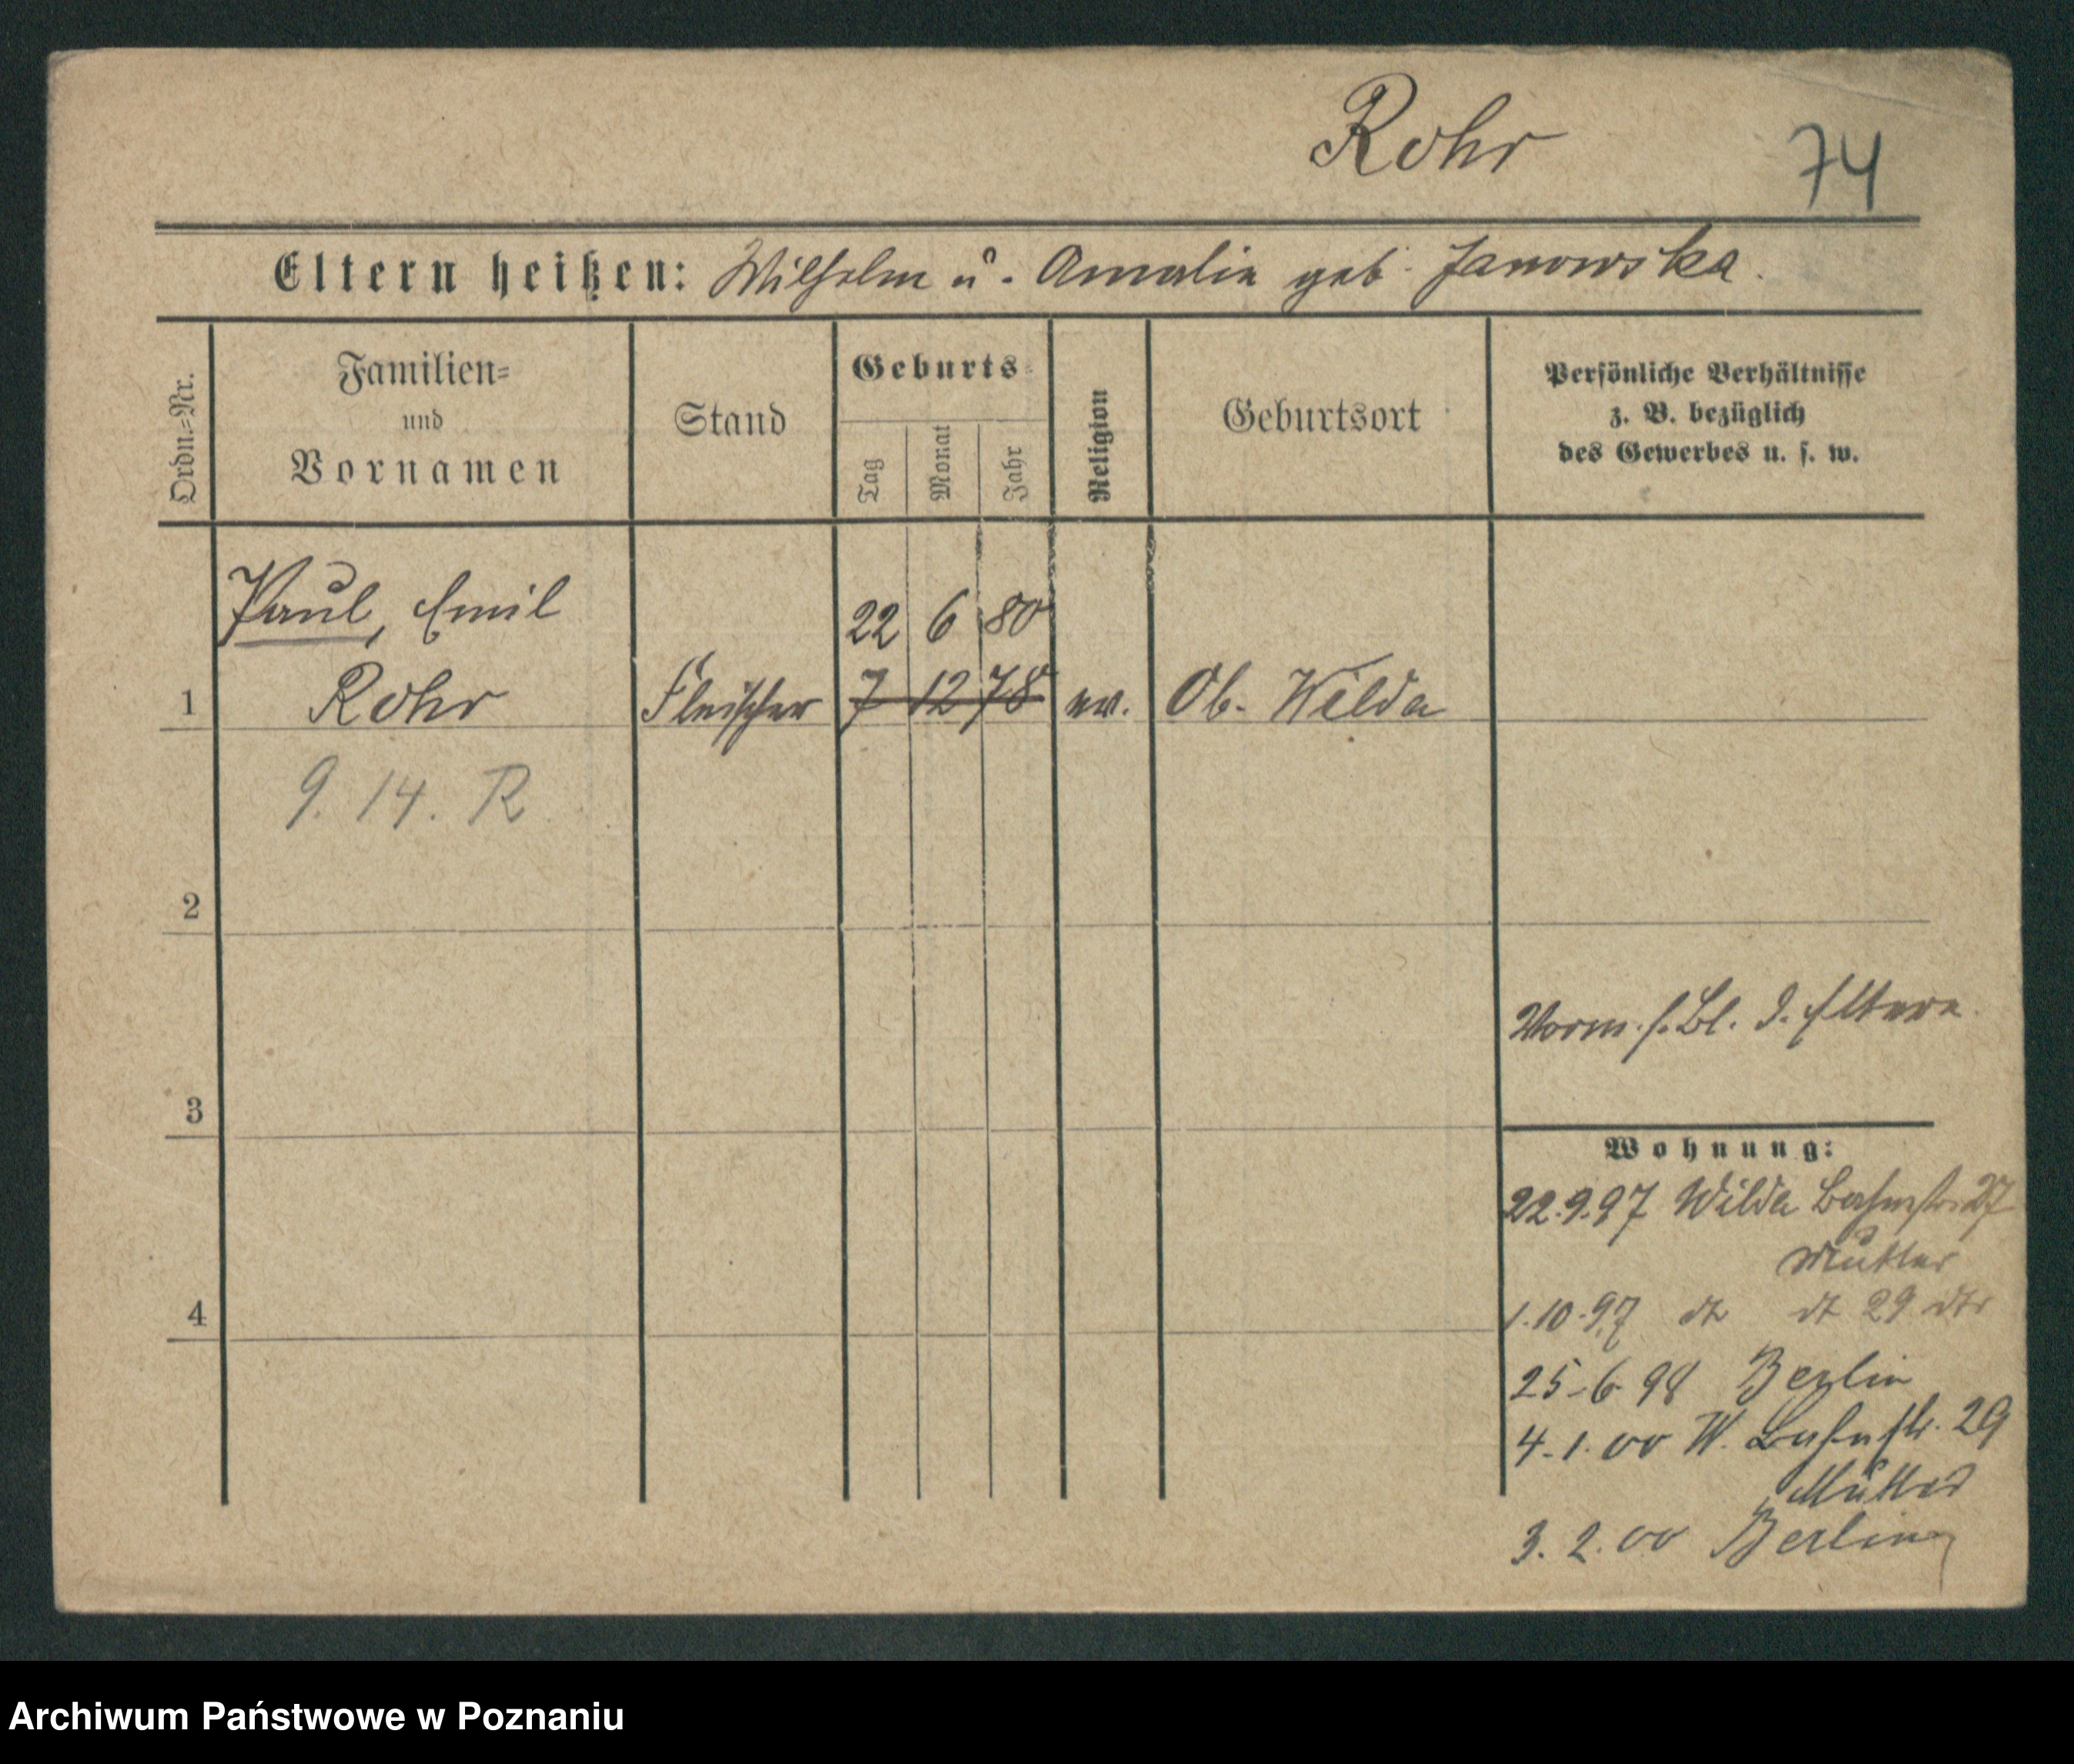 Rohr
74
Eltern heißen: Wilhelm u. Amalie geb. Janowska.
Ordn.-Nr.
Familien=
und
Vornamen
Stand
Geburts=
Tag
Monat
Jahr
Religion
Geburtsort
Persönliche Verhältnisse
z. B. bezüglich
des Gewerbes u. s. w.
Paul, Emil
22 6 80
1 Rohr Fleischer 7 12 78 ev. Ob. Wilda
9. 14. R
2
Vorm. s. Bl. d. Eltern
3
Wohnung:
22.9.97 Wilda Bahnstr. 27
Mutter
1.10.97 dt dt 29 dtr
4
25-6 98 Berlin
4.1.00 W. Bahnstr. 29
Mutter
3.2.00 Berlin
Archiwum Państwowe w Poznaniu